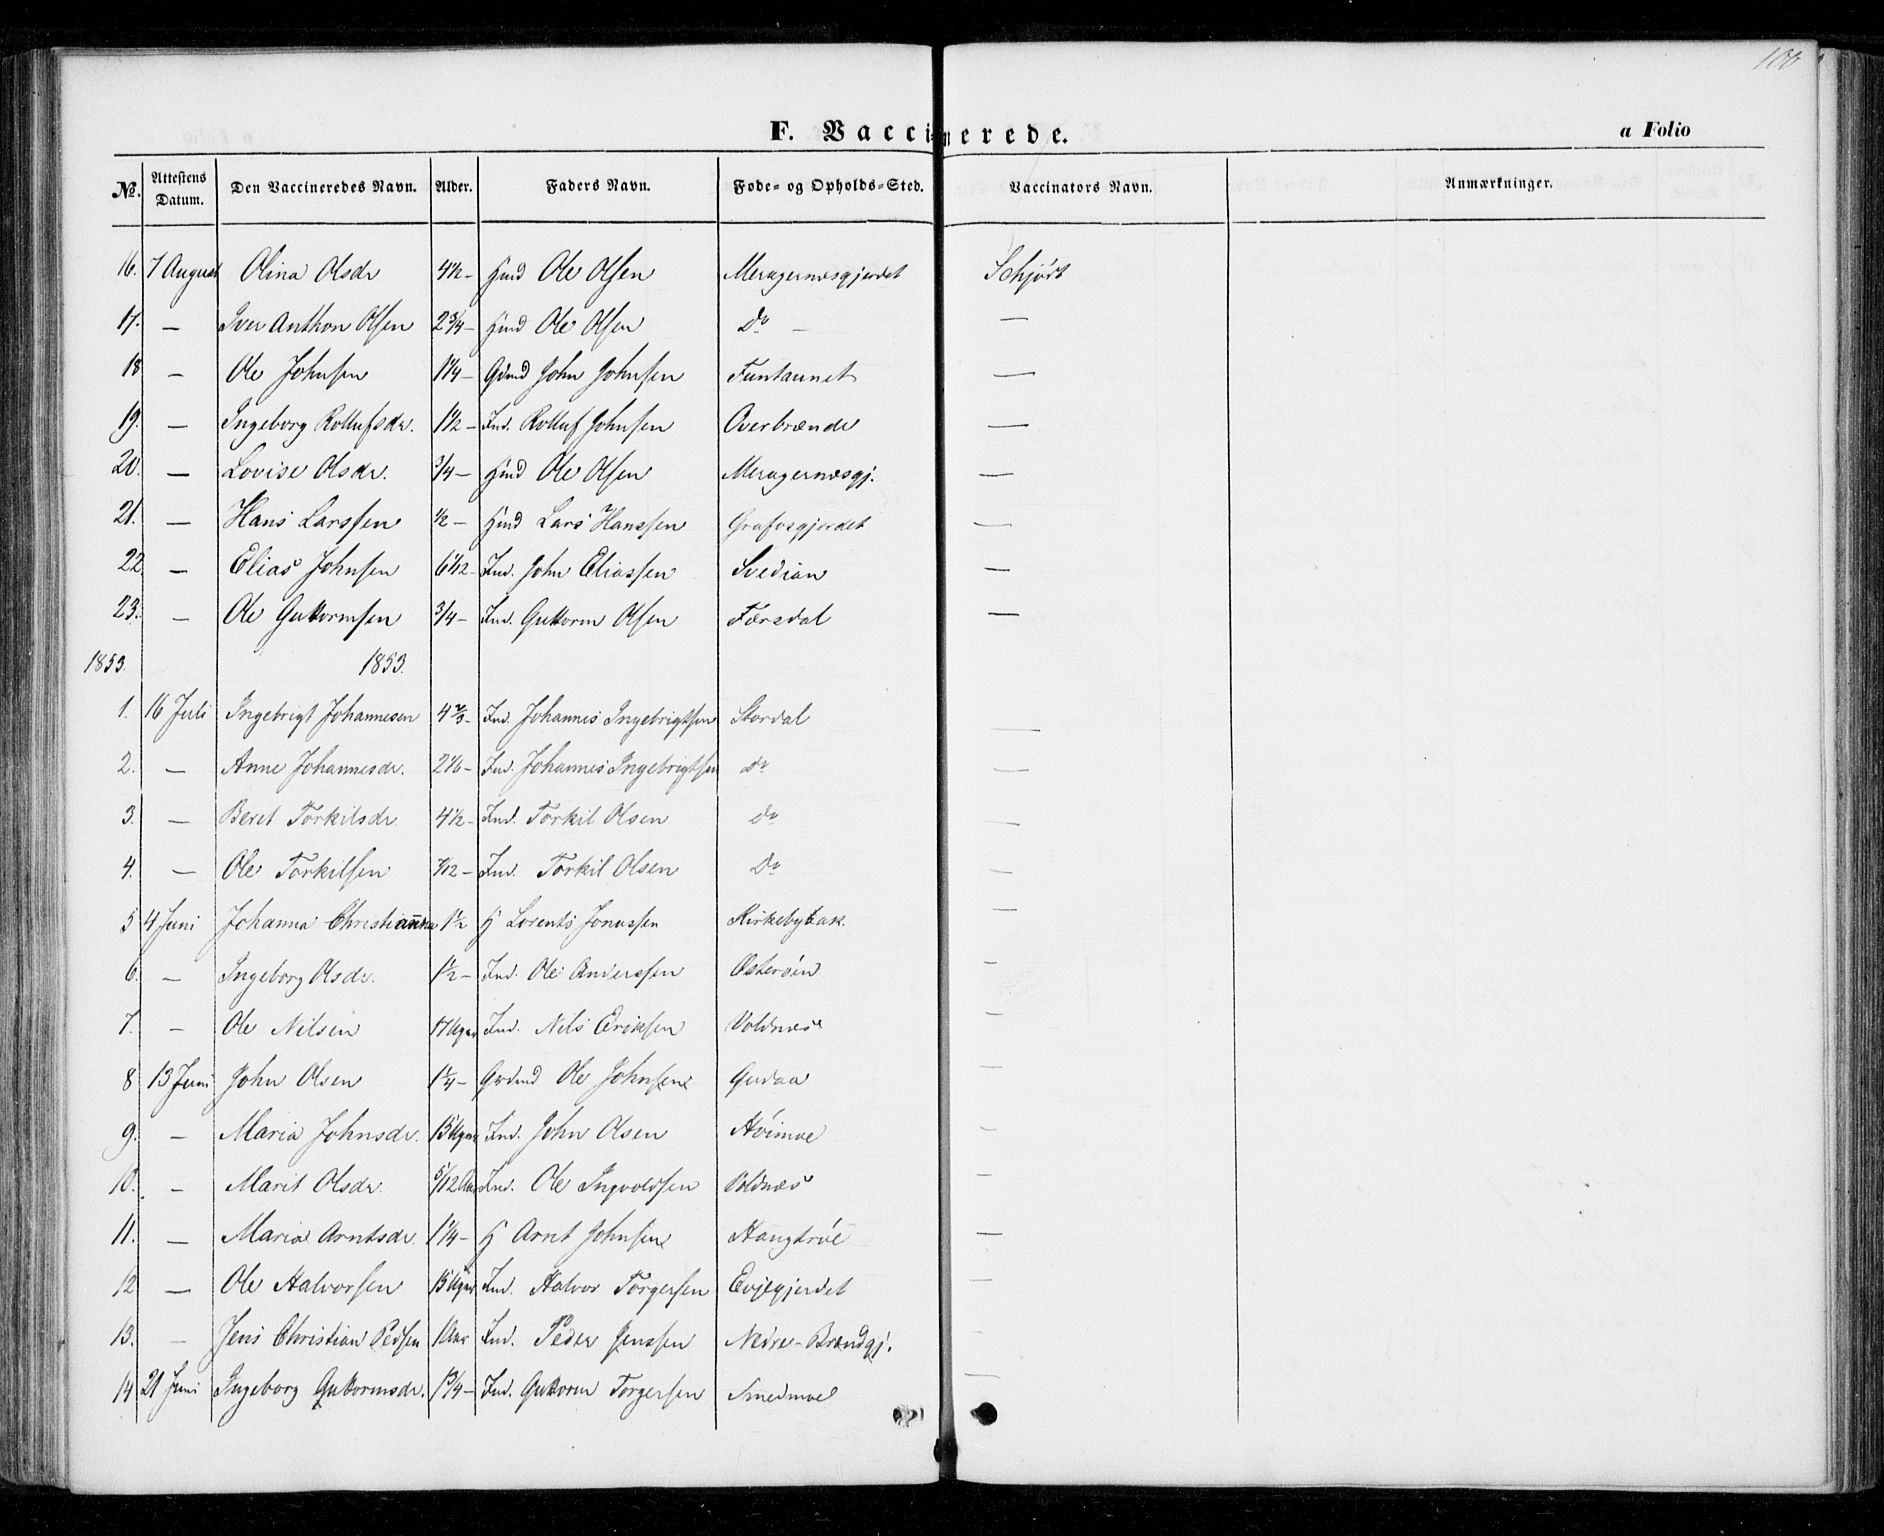 100
F. Vaccinerede.
a Folio
No. Attestens Datum. Den Vaccineredes Navn. Alder. Faders Navn. Føde- og Opholds-Sted. Vaccinators Navn. Anmærkninger.
16. 7 August Olina Olsdr 4 1/2 - Hmd Ole Olsen Meragernæsgjerdet Schjørt
17. — Iver Anthon Olsen 2 3/4 - Hmd Ole Olsen Do — —
18 — Ole Johnsen 1 1/4 - Gdmd John Johnsen Funtaunet —
19. — Ingeborg Rollufsdr. 1 1/2 - Ind. Rolluf Johnsen Overbrænde —
20. — Lovise Olsdr. 3/4 - Hmd Ole Olsen Meragernæsgj. —
21. — Hans Larssen 1/2 - Hmd Lars Hanssen Grafosgjerdet —
22 — Elias Johnsen 6 1/12 - Ind. John Eliassen Svedian —
23. — Ole Guttormsen 3/4 - Ind. Guttorm Olsen Færsdal —
1853. 1853.
1. 16 Juli Ingebrigt Johannesen 4 2/3 - Ind. Johannes Ingebrigtsen Stordal —
2. — Anne Johannesdr. 2 1/6 - Ind. Johannes Ingebrigtsen Do —
3. — Beret Torkilsdr. 4 1/2 - Ind. Torkil Olsen Do —
4. — Ole Torkilsen 7/12 - Ind. Torkil Olsen Do —
5 4 Juni Johanna Christianna 1 1/2 H Lorents Jonassen Kirkebybak. —
6. — Ingeborg Olsdr. 1 1/2 - Ind. Ole Anderssen Østerøin —
7. — Ole Nilsen 17 Uger Ind. Nils Eriksen Voldnæs —
8 13 Juni John Olsen 1 1/4 - Grdmd Ole Johnsen Gudaa —
9. — Maria Johnsdr. 15 Uger Ind. John Olsen Høimoe —
10. — Marit Olsdr. 5/12 Aar Ind. Ole Ingvoldsen Voldnæs —
11. — Maria Arntsdr. 1 1/4 - H Arnt Johnsen Haugtrøe —
12 — Ole Halvorsen 15 Uger Ind. Halvor Torgersen Evjegjerdet —
13. — Jens Christian Pedsen 1 Aar Ind. Peder Jenssen Nedre-Brændgj. —
14 21 Juni Ingeborg Guttormsdr. 1 3/4 - Ind. Guttorm Torgersen Smedmoe —